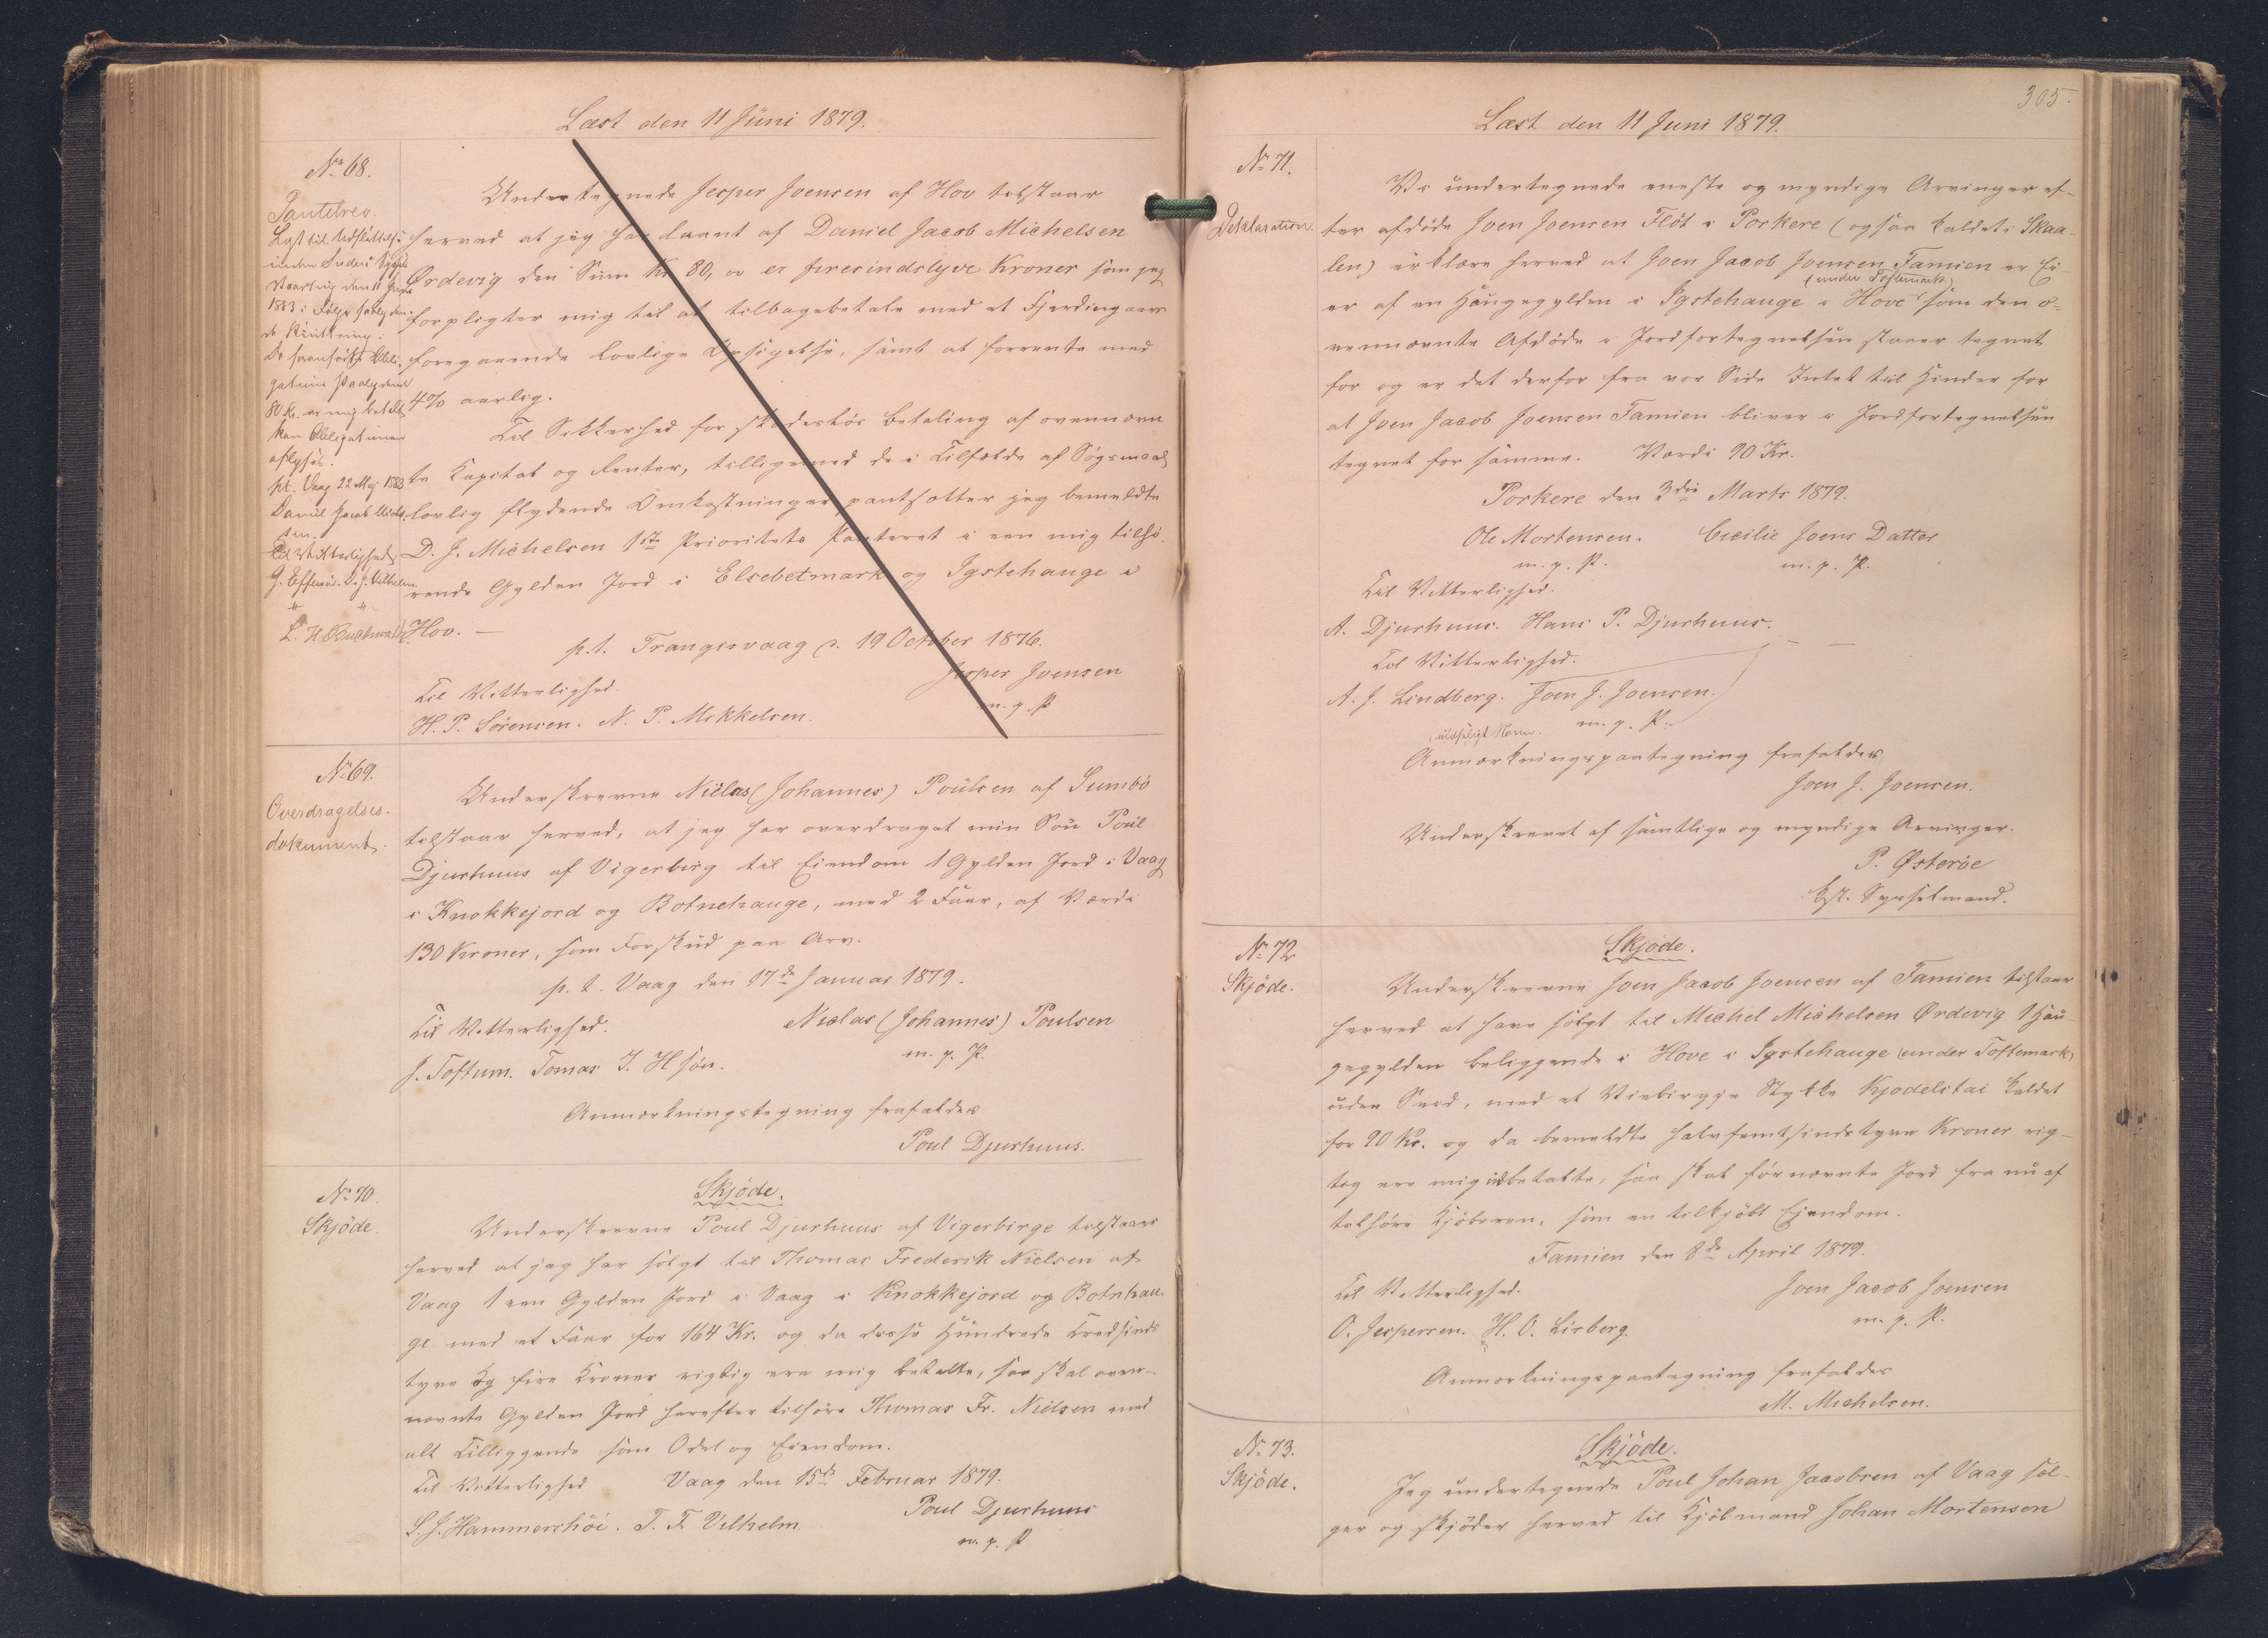 Læst den 11 Juni 1879.
No 68.
Pantebrev.
Lyst til Udslettelse
inden Suderø Syssels
Vaarting den 11 Juni
1883 i Følge saalyden-
de Kvittering.
De foranførte Obli-
gation paalydende
80 Kr. er mig betalt
kan Obligationen
aflyses.
pt. Vaag 22 Maj 1883
Daniel Jacob Michel-
sen.
Til Vitterlighed:
J. Effersøe. D. J. Vilhelm.
" "
L. H. Buchwaldt.
Undertegnede Jesper Joensen af Hov tilstaar
herved at jeg har laant af Daniel Jacob Michelsen
Ørdevig den Sum Kr 80, er firesindstyve Kroner som jeg
forpligter mig til at tilbagebetale med et Fjerdingaars
foregaaende lovlige Opsigelse, samt at forrente med
4% aarlig.
Til Sikkerhed for skadesløs Betaling af ovennævn
te Kapital og Renter, tilligemed de i Tilfælde af Søgsmaal
lovlig flydende Omkostninger pantsætter jeg bemeldte
D. J. Michelsen 1ste Prioritets Panteret i een mig tilhø-
rende Gylden Jord i Elsebetmark og Igstehauge i
Hov. —
p.t. Trangisvaag d. 19 October 1876.
Jesper Joensen
m. p. P
Til Vitterlighed.
H. P. Sørensen. N. P. Mikkelsen.
No 69.
Overdragelses-
dokument.
Underskrevne Niclas (Johannes) Poulsen af Sumbø
tilstaar herved, at jeg har overdraget min Søn Poul
Djurhuus af Vigerbirg til Eiendom 1 Gylden Jord i Vaag
i Knokkejord og Botnehauge, med 2 Faar, af Værdi
130 Kroner, som Forskud paa Arv.
p. t. Vaag den 17de Januar 1879.
Til Vitterlighed. Niclas (Johannes) Poulsen
J. Toftum. Tomas J. Hsøn. m. p. P.
Anmærkningstegning frafaldes
Poul Djurhuus.
No 70.
Skjöde.
Skjöde.
Underskrevne Poul Djurhuus af Vigerbirge tilstaar
herved at jeg har solgt til Thomas Frederik Nielsen af
Vaag 1 een Gylden Jord i Vaag i Knokkejord og Botnhau-
ge med et Faar for 164 Kr. og da disse Hundrede Tredsinds
tyve og fire Kroner rigtig ere mig betalte, saa skal oven-
nævnte Gylden Jord herefter tilhøre Thomas Fr. Nielsen med
alt Tilliggende som Odel og Eiendom.
Til Vitterlighed Vaag den 15de Februar 1879.
S. J. Hammershöi. T. F. Vilhelm. Poul Djurhuus
m. p. P
305.
Læst den 11 Juni 1879.
No 71.
Deklaration.
Vi undertegnede eneste og myndige Arvinger ef-
ter afdøde Joen Joensen Fløt i Porkere (ogsaa kaldet i Skaa-
len) erklære herved at Joen Jacob Joensen Famien er Ei-
(under Toftemark)
er af en Haugegylden i Igstehauge i Hove som den o-
vennævnte Afdøde i Jordfortegnelsen staaer tegnet
for og er det derfor fra vor Side Intet til Hinder for
at Joen Jacob Joensen Famien bliver i Jordfortegnelsen
tegnet for samme. Værdi 90 Kr.
Porkere den 3die Marts 1879.
Ole Mortensen. Cicilie Joens Datter
m. p. P. m. p. P.
Til Vitterlighed.
A. Djurhuus. Hans P. Djurhuus.
Til Vitterlighed.
A. J. Lindberg. Joen J. Joensen.
ulæseligt Navn. m. p. P.
Anmærkningspaategning frafaldes
Joen J. Joensen.
Underskrevet af samtlige og myndige Arvinger.
P. Østerøe
Kst. Sysselmand.
No 72
Skjöde.
Skjöde.
Underskrevne Joen Jacob Joensen af Famien tilstaar
herved at have solgt til Michel Michelsen Ørdevig 1 Hau-
gegylden beliggende i Hove i Igstehauge (under Toftemark)
uden Sæd, med et Viebirgje Stykke Kjodelstai kaldet
for 90 Kr. og da bemeldte halvfemtsindstyve Kroner rig-
tig ere mig udbetalte, saa skal førnævnte Jord fra nu af
tilhøre Kjöberen, som en tilkjöbt Ejendom.
Famien den 8de April 1879.
Til Vitterlighed. Joen Jacob Joensen
O. Jespersen. H. O. Lisberg. m. p. P.
Anmærkningspaategning frafaldes
M. Michelsen.
No 73.
Skjöde.
Skjöde.
Jeg undertegnede Poul Johan Jacobsen af Vaag sæl-
ger og skjöder herved til Kjöbmand Johan Mortensen